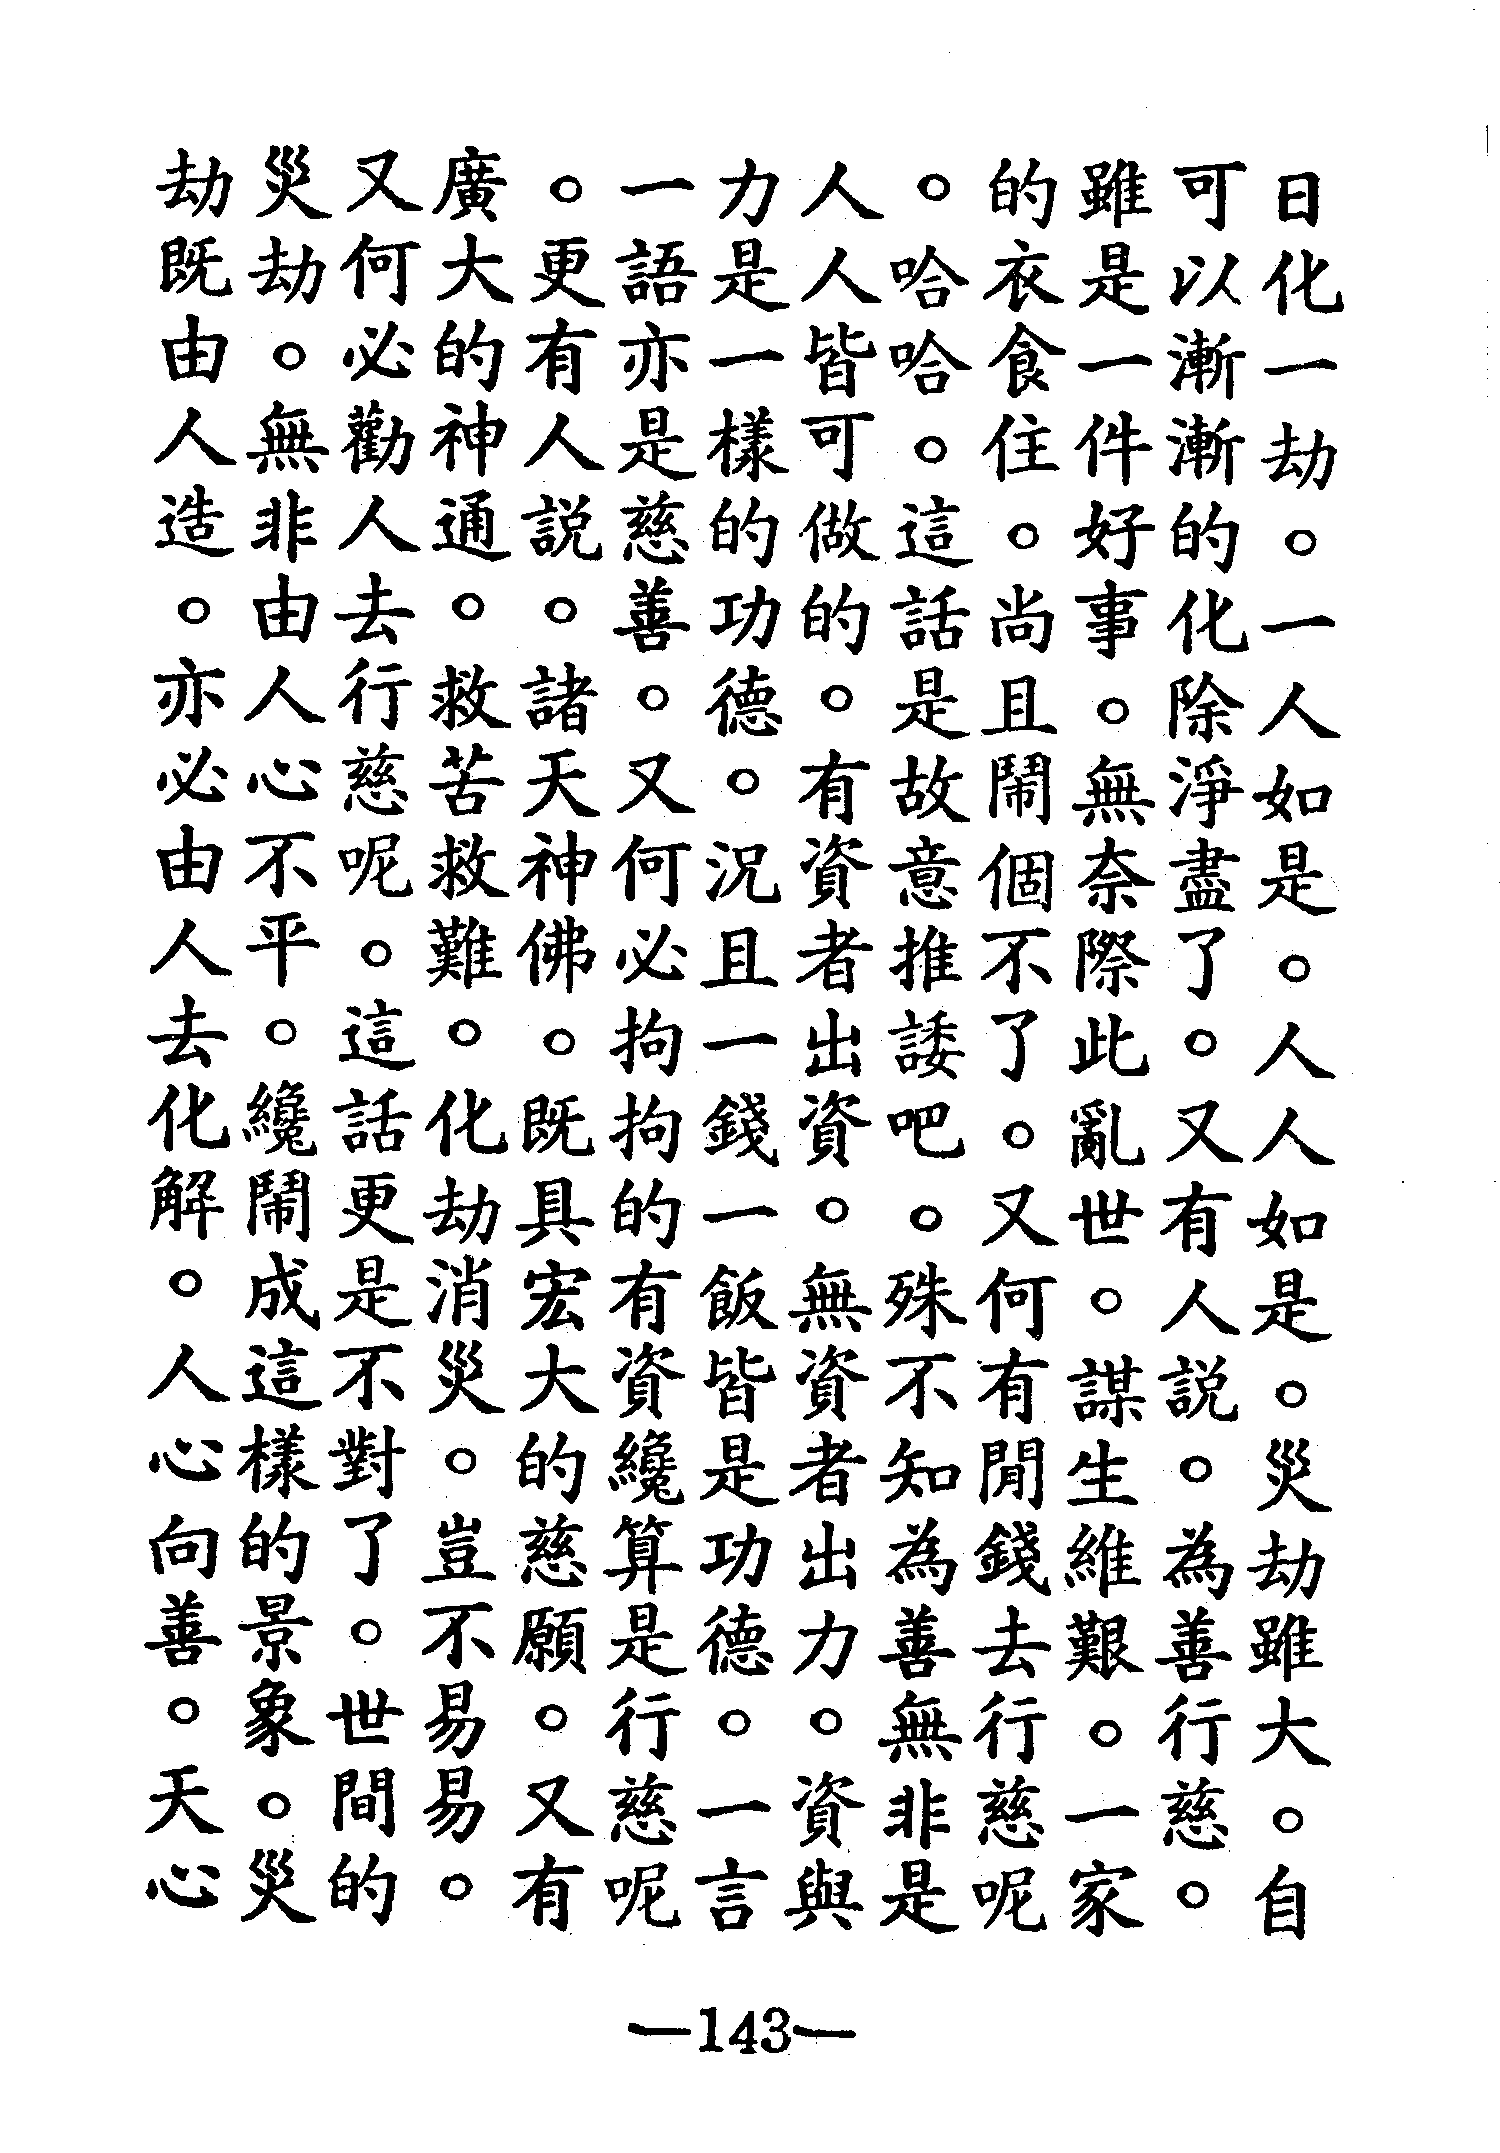 日化一劫。一人如是。人人如是。災劫雖大。自
可以漸漸的化除淨盡了。又有人說。為善行慈。
雖是一件好事。無奈際此亂世。謀生維艱。一家
的衣食住。尚且鬧個不了。又何有閒錢去行慈呢
。哈哈。這話是故意推諉吧。殊不知為善無非是
人人皆可做的。有資者出資。無資者出力。資與
力是一樣的功德。況且一錢一飯皆是功德。一言
一語亦是慈善。又何必拘拘的有資纔算是行慈呢
。更有人說。諸天神佛。既具宏大的慈願。又有
廣大的神通。救苦救難。化劫消災。豈不易易。
又何必勸人去行慈呢。這話更是不對了。世間的
災劫。無非由人心不平。纔鬧成這樣的景象。災
劫既由人造。亦必由人去化解。人心向善。天心
—143—